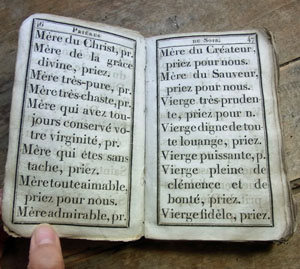 46 PRIÈRES
Mère du Christ, pr.
Mère de la grâce
divine, priez.
Mère très-pure, pr.
Mère très-chaste, pr.
Mère qui avez tou-
jours conservé vo-
tre virginité, pr.
Mère qui êtes sans
tache, priez.
Mère toute aimable,
priez pour nous.
Mère admirable, pr.
DU SOIR. 47
Mère du Créateur,
priez pour nous.
Mère du Sauveur,
priez pour nous.
Vierge très-pruden
te, priez pour n.
Vierge digne de tou-
te louange, priez.
Vierge puissante, p.
Vierge pleine de
clémence et de
bonté, priez.
Vierge fidèle, priez.